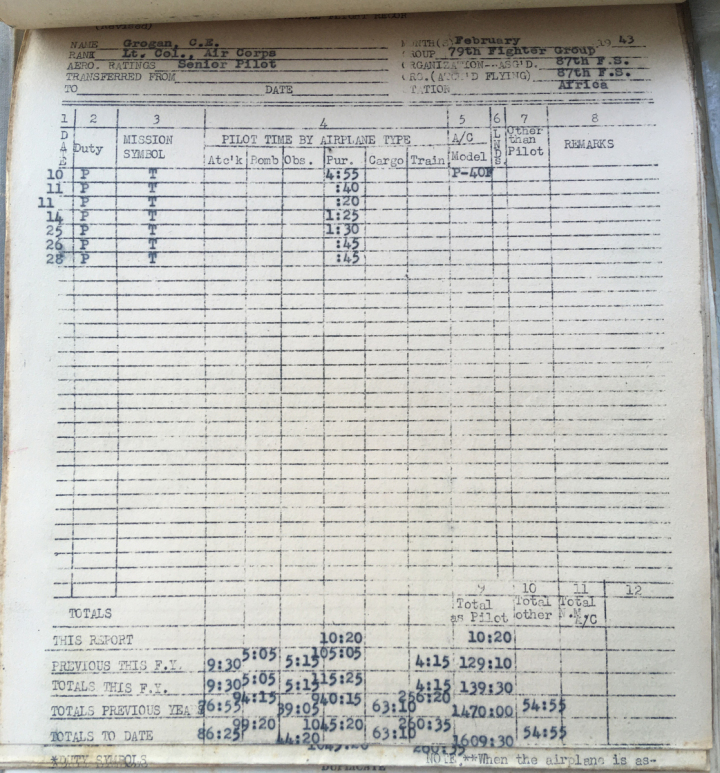 (Revised)
NAME Grogan, C.E. MONTH(S) February 19 43
RANK Lt. Col., Air Corps GROUP 79th Fighter Group
AERO. RATINGS Senior Pilot ORGANIZATION--ASG'D. 87th F.S.
TRANSFERRED FROM ORG.(ATCH'D FLYING) 87th F.S.
TO DATE STATION Africa
1 2 3 4 5 6 7 8
DATE Duty MISSION SYMBOL PILOT TIME BY AIRPLANE TYPE A/C Model LNDS. Other than Pilot REMARKS
Atc'k Bomb Obs. Pur. Cargo Train
10 P T 4:55 P-40F
11 P T :40
11 P T :20
14 P T 1:25
25 P T 1:30
26 P T :45
28 P T :45
9 10 11 12
TOTALS Total as Pilot Total other Total N.M. A/C
THIS REPORT 10:20 10:20
PREVIOUS THIS F.Y. 9:30 5:05 5:15 105:05 4:15 129:10
TOTALS THIS F.Y. 9:30 5:05 5:15 115:25 4:15 139:30
TOTALS PREVIOUS YEARS 76:55 94:15 39:05 940:15 63:10 256:20 1470:00 54:55
TOTALS TO DATE 86:25 99:20 44:20 1045:20 63:10 260:35 1609:30 54:55
*DUTY SYMBOLS NOTE **When the airplane is as-
DUPLICATE